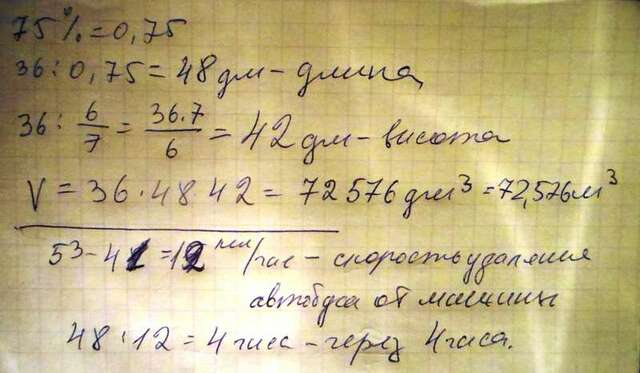 75% = 0,75
36 : 0,75 = 48 дм - длина
36 : 6/7 = 36·7/6 = 42 дм - высота
V = 36·48·42 = 72 576 дм³ = 72,576 м³
53 - 41 = 12 км/час - скорость удаления
автобуса от машины
48 : 12 = 4 часа - через 4 часа.